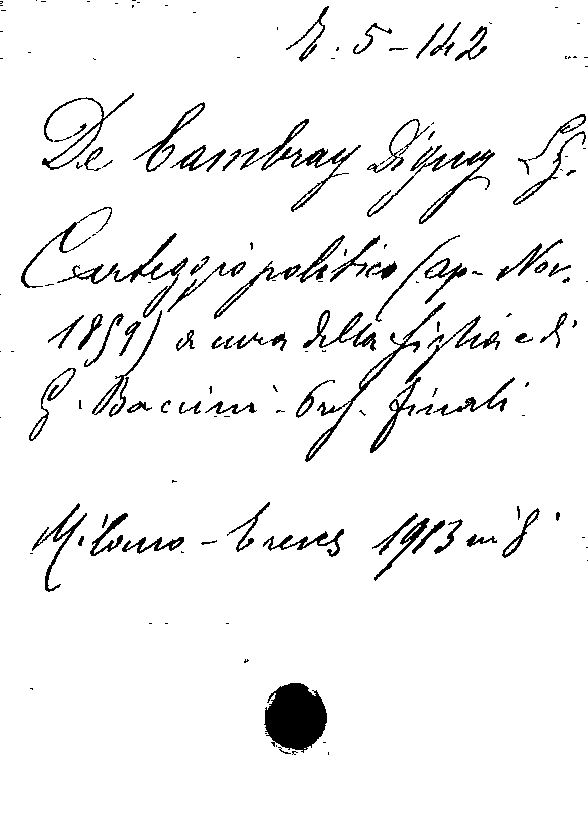 E. 5-142
De Cambray Digny L.G.
Carteggio politico (ap- Nov.
1859) a cura della figlia e di
G. Baccini - Pref. Finali
Milano - Treves 1913 in 8°